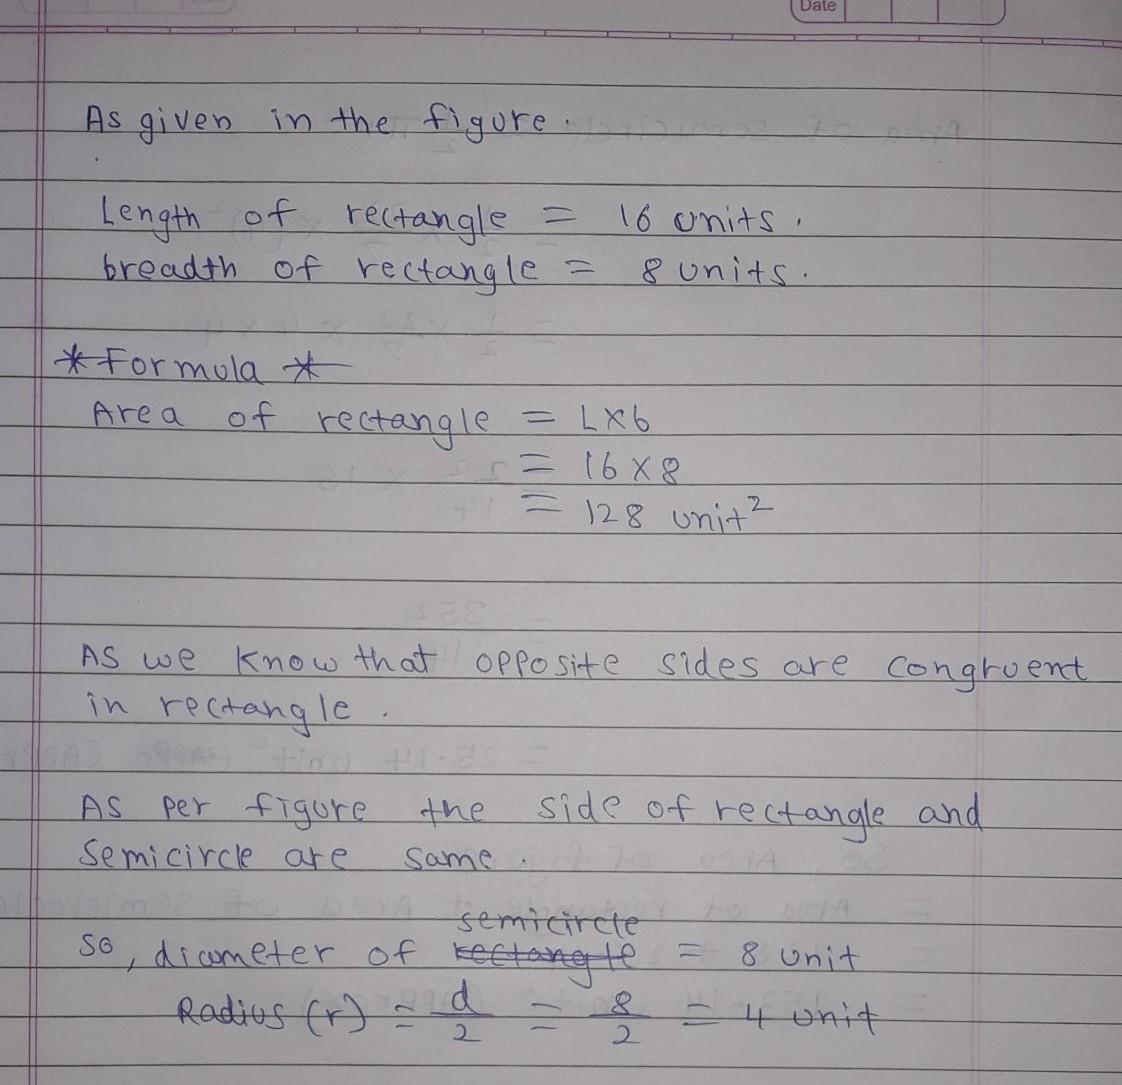 Date
As given in the figure.
Length of rectangle = 16 units.
breadth of rectangle = 8 units.
* Formula *
Area of rectangle = L×b
= 16 × 8
= 128 unit²
As we know that opposite sides are congruent
in rectangle.
As per figure the side of rectangle and
semicircle are same.
semicircle
So, diameter of rectangle = 8 unit
Radius (r) = d/2 = 8/2 = 4 unit